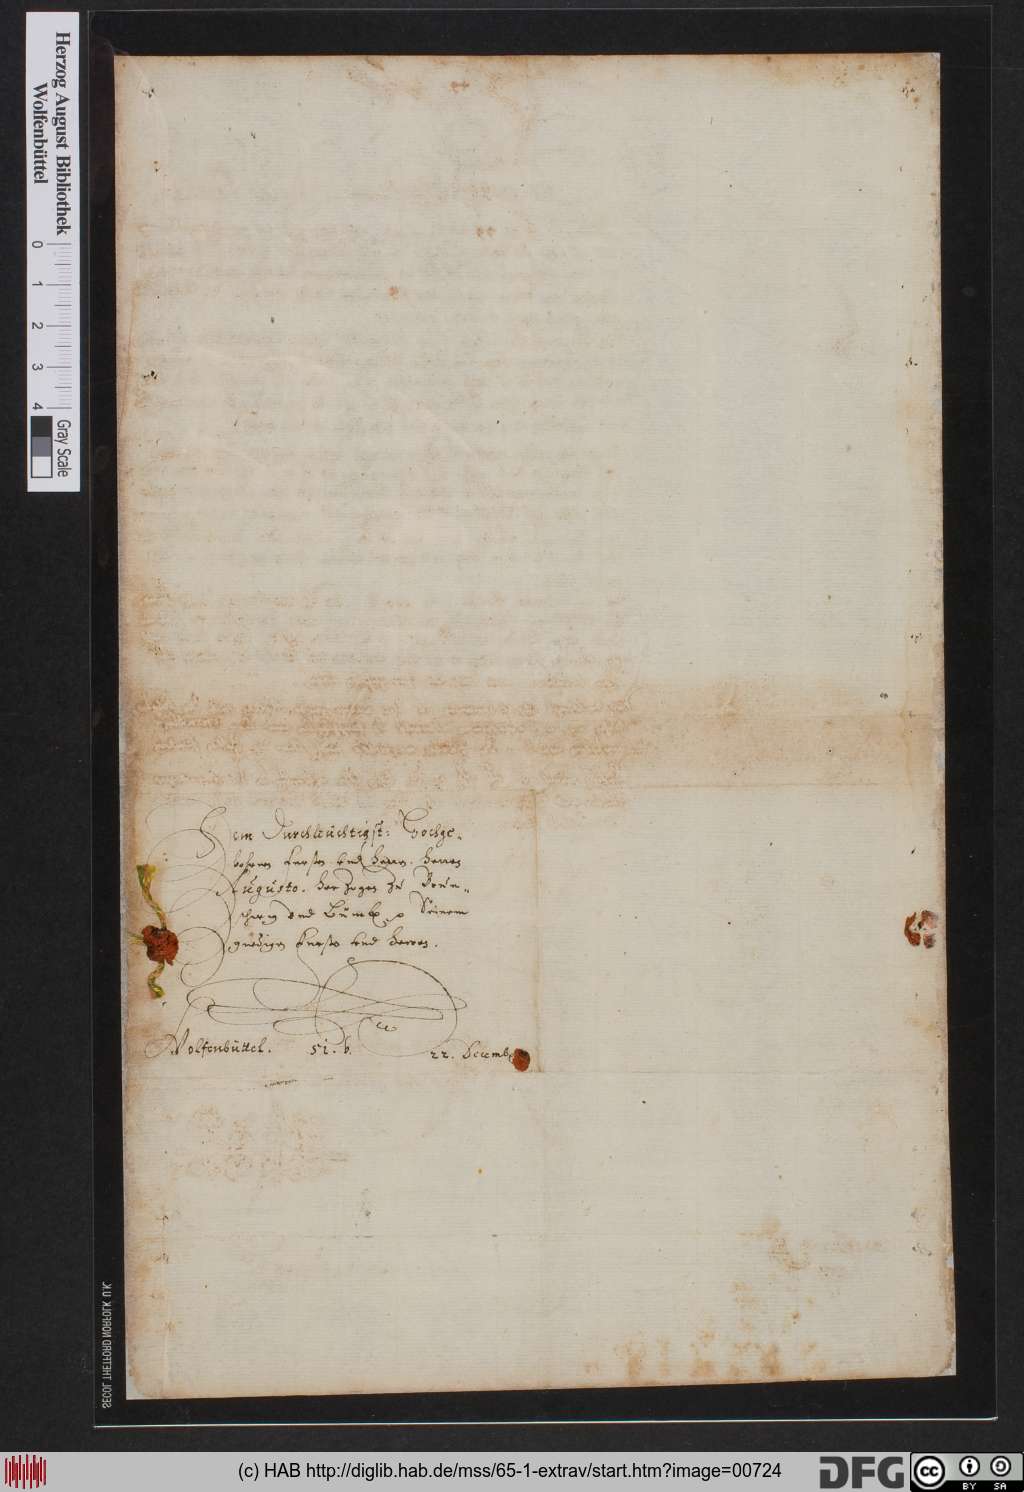 Herzog August Bibliothek
Wolfenbüttel
0 1 2 3 4
Gray Scale
Dem Durchleuchtigst: Hochge-
bohrnen Fursten und Herrn. Herren
Augusto. Hertzogen zu Braun-
schweig und Lüneb. Seinem
gnedigen Fursten und Herren.
Wolfenbüttel. 51. 22. Decemb
SECOL THETFORD NORFOLK U.K.
(c) HAB http://diglib.hab.de/mss/65-1-extrav/start.htm?image=00724
DFG
cc BY SA